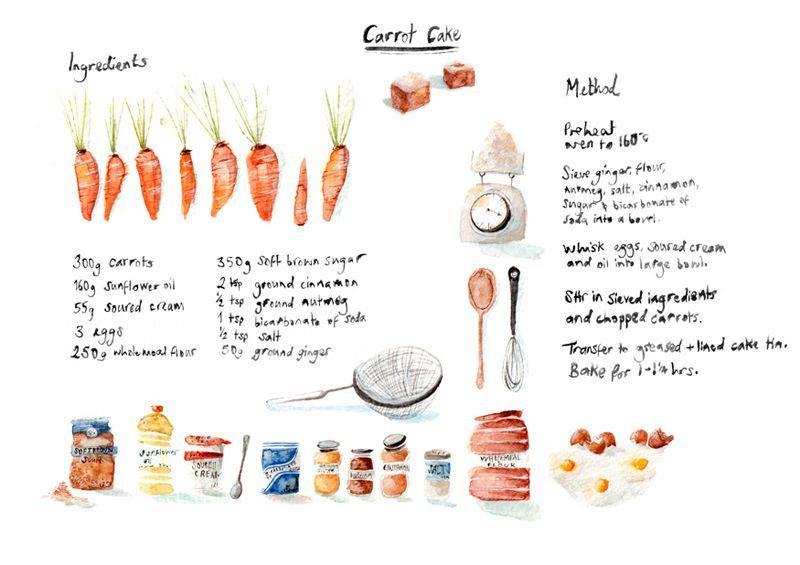 Carrot Cake
Ingredients
300g carrots
160g sunflower oil
55g soured cream
3 eggs
250g wholemeal flour
350g soft brown sugar
2 tsp ground cinnamon
½ tsp ground nutmeg
1 tsp bicarbonate of soda
½ tsp salt
50g ground ginger
Method
Preheat
oven to 160°c
Sieve ginger, flour,
nutmeg, salt, cinnamon,
sugar & bicarbonate of
soda into a bowl.
Whisk eggs, soured cream
and oil into large bowl.
Stir in sieved ingredients
and chopped carrots.
Transfer to greased + lined cake tin.
Bake for 1-1¼ hrs.
SOFT BROWN
SUGAR
Sunflower
oil
SOURED
CREAM
CINNAMON
SALT
WHOLEMEAL
FLOUR